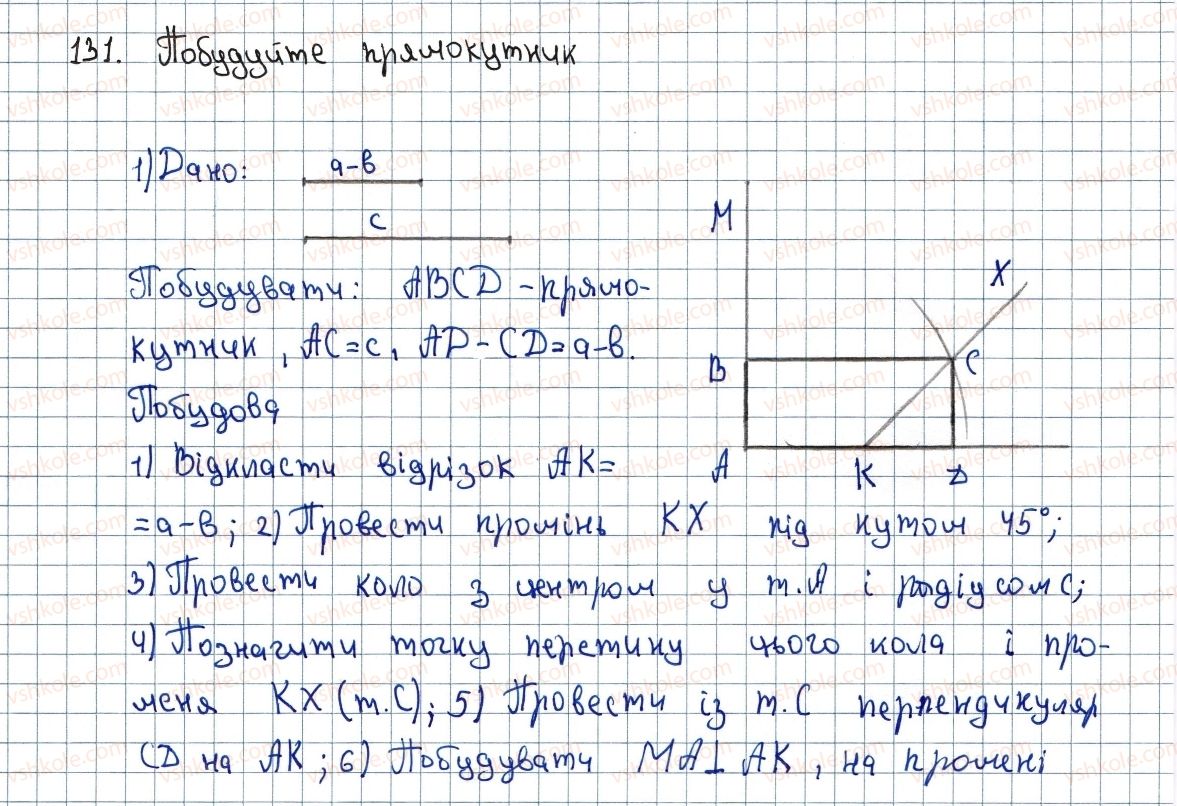 131. Побудуйте прямокутник
1) Дано: a-b
c
Побудувати: ABCD - прямо-
кутник, AC=c, AD-CD=a-b.
Побудова
1) Відкласти відрізок AK=
=a-b; 2) Провести промінь KX під кутом 45°;
3) Провести коло з центром у т.A і радіусом c;
4) Позначити точку перетину цього кола і про-
меня KX (т.C); 5) Провести із т.C перпендикуляр
CD на AK; 6) Побудувати MA⊥AK, на промені
M
X
B
C
A
K
D
vshkole.com